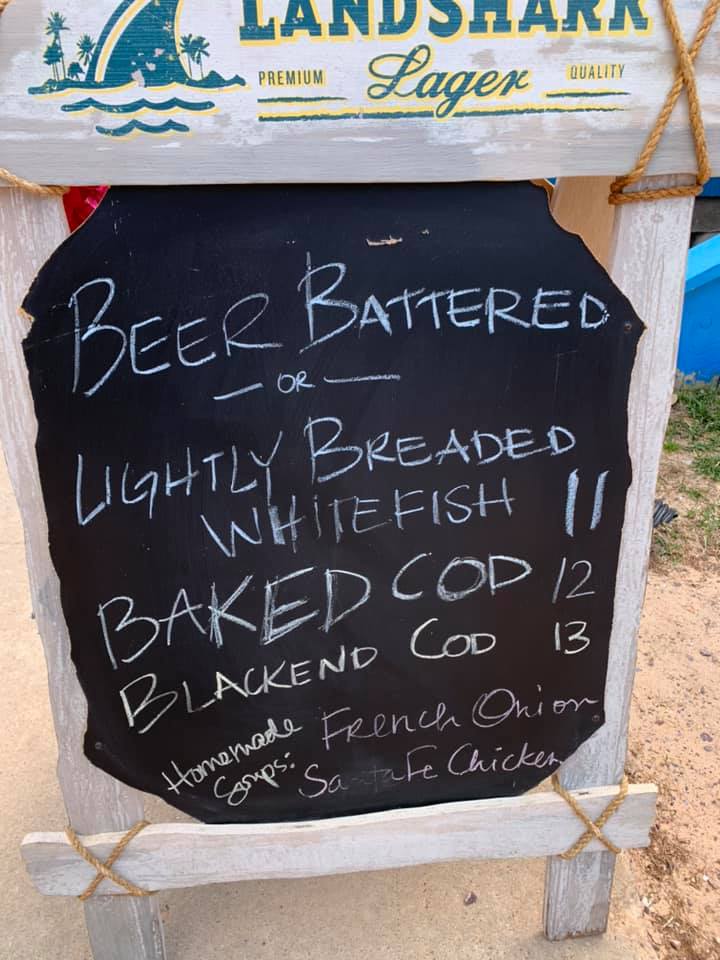 LANDSHARK
PREMIUM Lager QUALITY
BEER BATTERED
— OR —
LIGHTLY BREADED
WHITEFISH 11
BAKED COD 12
BLACKEND COD 13
Homemade French Onion
Soups: Santa Fe Chicken